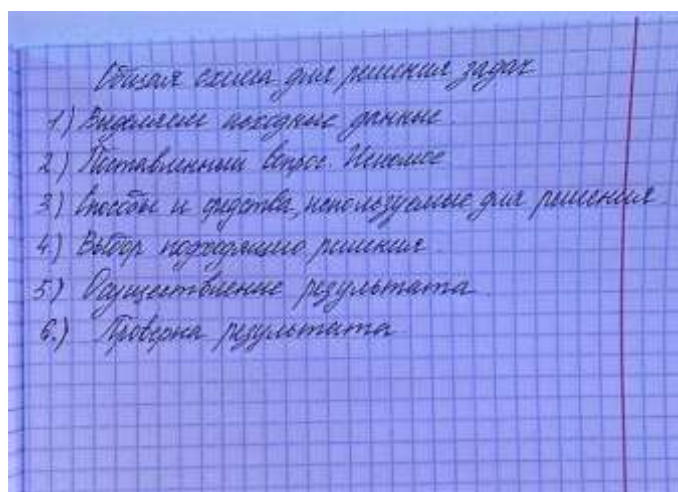 Общая схема для решения задач
1) Выделяем исходные данные.
2) Поставленный вопрос. Искомое
3) Способы и средства, используемые для решения.
4) Выбор подходящего решения.
5) Осуществление результата.
6.) Проверка результата